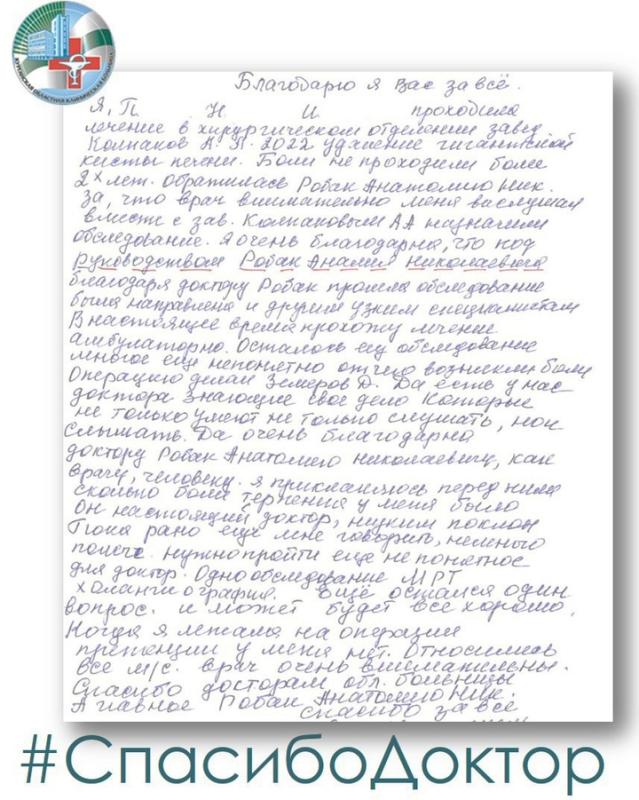 КУРГАНСКАЯ ОБЛАСТНАЯ КЛИНИЧЕСКАЯ БОЛЬНИЦА
Благодарю я Вас за всё.
Я, П Н И проходила
лечение в хирургическом отделении завед
Колпаков А. А. 2022 удаление гигантской
кисты печени. Боли не проходили более
2х лет. Обратилась Робак Анатолию Ник.
За, что врач внимательно меня выслушал
вместе с зав. Колпаковым АА назначили
обследование. Я очень благодарна, что под
Руководством Робак Анатолия Николаевича
благодаря доктору Робак прошла обследование
была направлена и другим узким специалистам
В настоящее время прохожу лечение
амбулаторно. Осталось ещ обследование
многое ещ непонятно от чего возникли боли
Операцию делал Земеров Д. Да есть у нас
доктора знающие свое дело которые
не только умеют не только слушать, но и
слышать. Да очень благодарна
доктору Робак Анатолию Николаевичу, как
врачу, человеку. я приклоняюсь перед ним
сколько боли терпения у меня было
Он настоящий доктор, низким поклон
Пока рано ещё мне говорить, немного
полегче. нужно пройти еще не понятное
для доктор. Одно обследование МРТ
холангиография. Ещё остался один
вопрос. и может будет всё хорошо.
Когда я лежала на операции
претензии у меня нет. Относились
все м/с. врач очень внимательны.
Спасибо докторам обл. больницы
А главное Робак Анатолию Ник.
спасибо за всё
#СпасибоДоктор